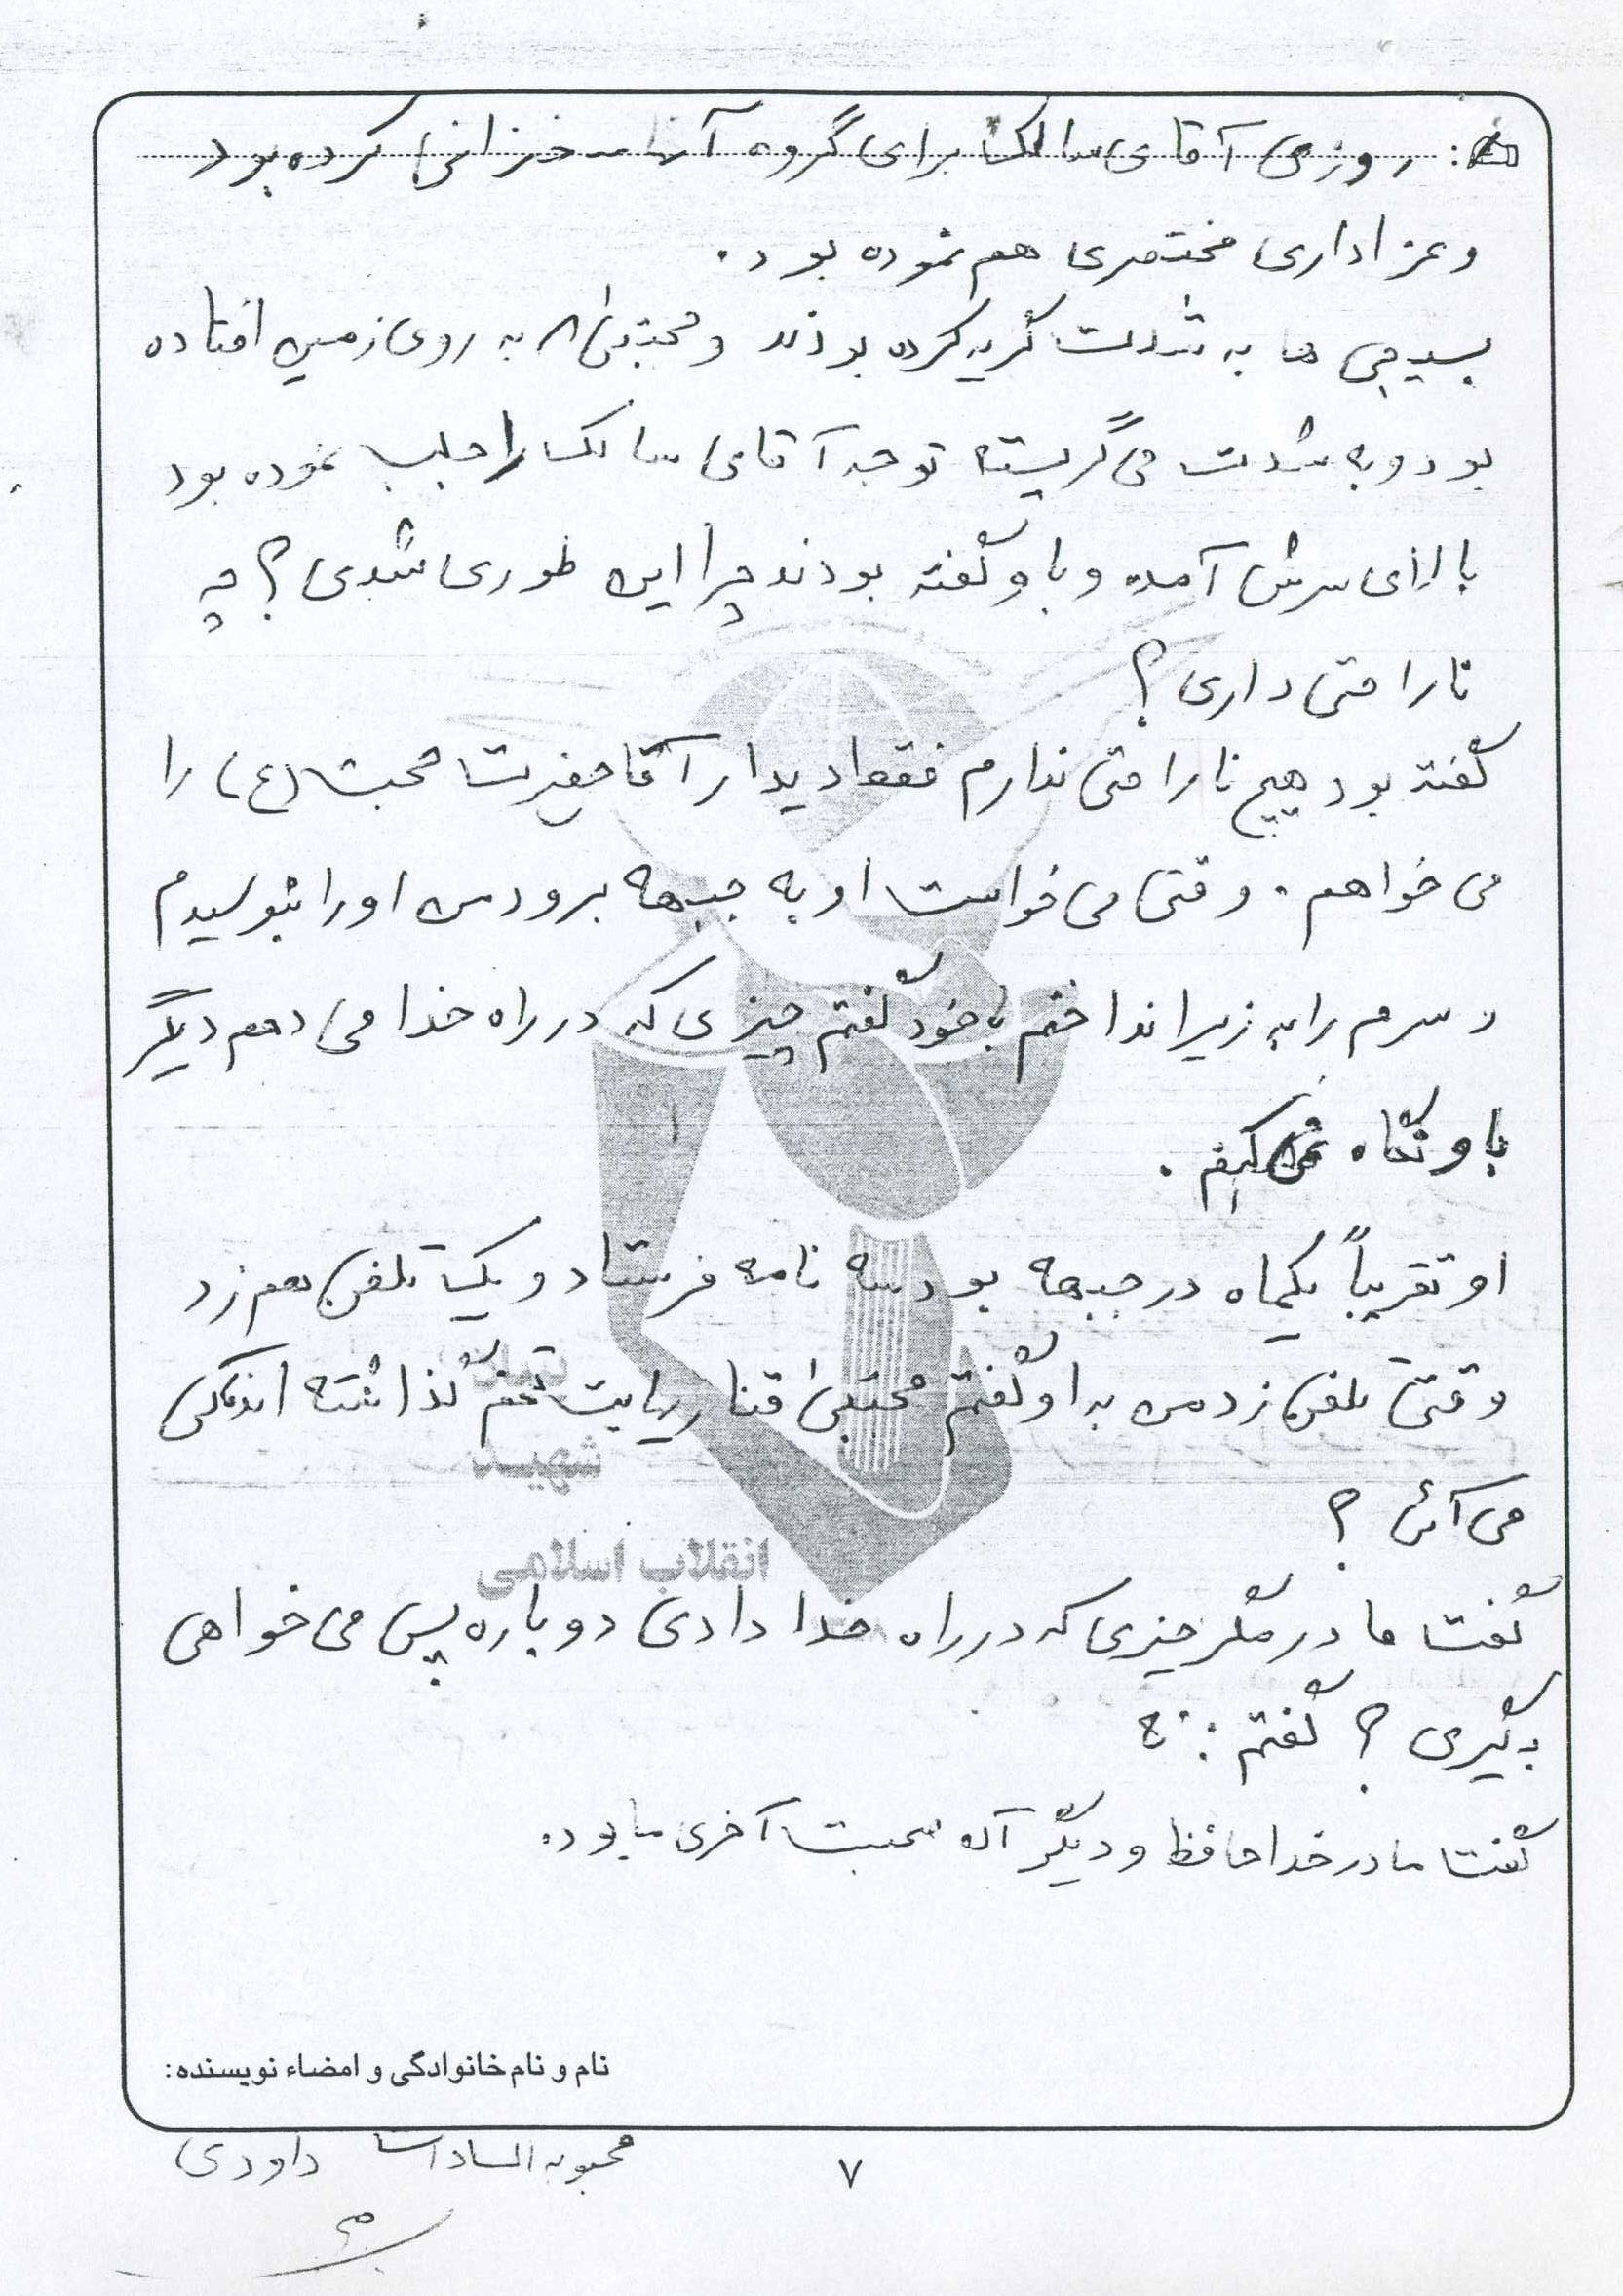 روزی آقای سالک برای گروه آنها سخنرانی کرده بود
و عزاداری مختصری هم نموده بود.
بسیجی ها به شدت گریه کرده بودند و مجتبی ۸ به روی زمین افتاده
بود و به شدت می گریسته توجه آقای سالک را جلب نموده بود
بالای سرش آمده و باو گفته بودند چرا این طوری شدی؟ چه
ناراحتی داری؟
گفته بود هیچ ناراحتی ندارم فقط دیدار آقا حضرت حجت (ع) را
می خواهم. وقتی می خواست او به جبهه برود من او را نبوسیدم
و سرم را به زیر انداختم با خود گفتم چیزی که در راه خدا می دهم دیگر
باو نگاه نمی کنم.
او تقریباً یکماه در جبهه بود سه نامه فرستاد و یک تلفن هم زد
وقتی تلفن زد من به او گفتم مجتبی قناریهایت تخم گذاشته اند کی
می آئی؟
گفت مادر مگر چیزی که در راه خدا دادی دوباره پس می خواهی
بگیری؟ گفتم: نه
گفت مادر خداحافظ و دیگر آن صحبت آخری ما بود.
شهید
انقلاب اسلامی
نام و نام خانوادگی و امضاء نویسنده:
محبوبه السادات داودی
۷